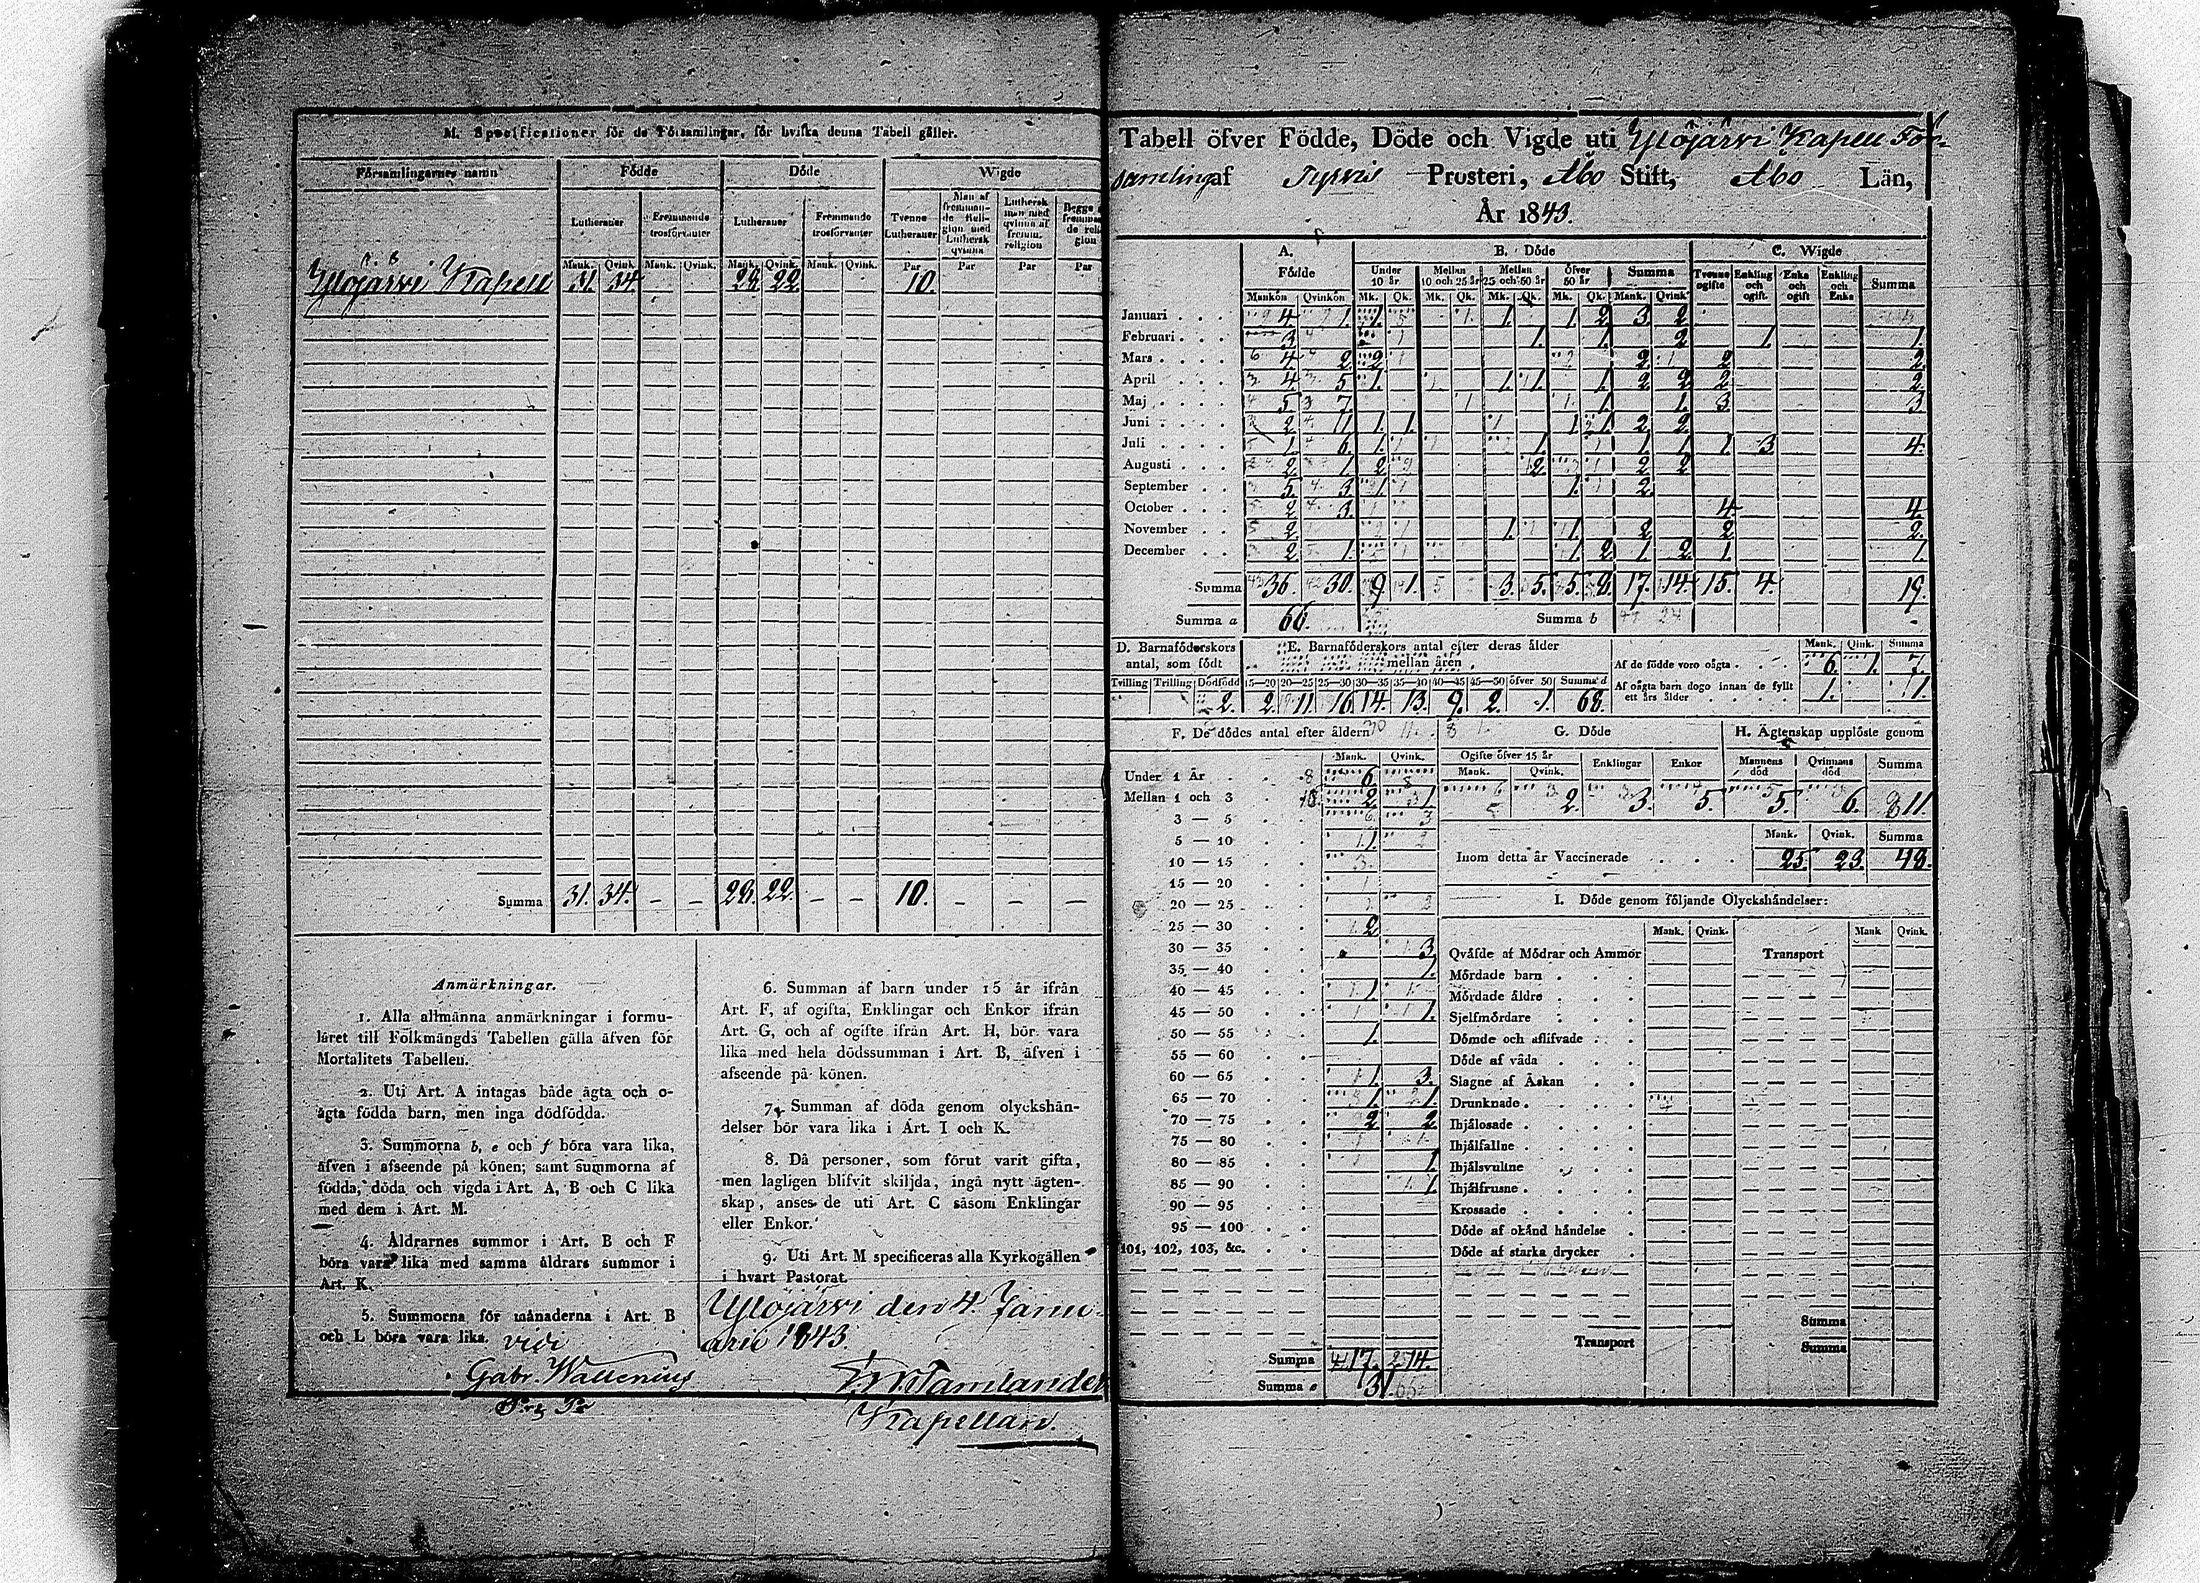 M. Specificationer för de Församlingar, för hvilka denna Tabell gäller.
Församlingarnes namn Födde Döde Wigde
Lutheraner Fremmande trosförvanter Lutheraner Fremmande trosförvanter Tvenne Lutheraner Man af fremmande Religion med Luthersk qvinna Luthersk man med qvinna af fremm. religion Begge
Mank. Qvink. Mank. Qvink. Mank. Qvink. Mank. Qvink. Par Par Par Par
Ylöjärvi Kapell 31. 34. 28. 22. 10.
Summa 31. 34. – – 28. 22. – – 10. – – –
Anmärkningar.
1. Alla allmänna anmärkningar i formu-
läret till Folkmängds Tabellen gälla äfven för
Mortalitets Tabellen.
2. Uti Art. A intagas både ägta och o-
ägta födda barn, men inga dödfödda.
3. Summorna b, e och f böra vara lika,
äfven i afseende på könen; samt summorna af
födda, döda och vigda i Art. A, B och C lika
med dem i Art. M.
4. Åldrarnes summor i Art. B och F
böra vara lika med samma åldrars summor i
Art. K.
5. Summorna för månaderna i Art. B
och L böra vara lika.
vidi
Gabr. Wallenius
6. Summan af barn under 15 år ifrån
Art. F, af ogifta, Enklingar och Enkor ifrån
Art. G, och af ogifte ifrån Art. H, bör vara
lika med hela dödssumman i Art. B, äfven i
afseende på könen.
7. Summan af döda genom olyckshän-
delser bör vara lika i Art. I och K.
8. Då personer, som förut varit gifta,
men lagligen blifvit skiljda, ingå nytt ägten-
skap, anses de uti Art. C såsom Enklingar
eller Enkor.
9. Uti Art. M specificeras alla Kyrkogällen
i hvart Pastorat.
Ylöjärvi den 4 Janu-
arii 1843.
Tamlander
Kapellan.
Tabell öfver Födde, Döde och Vigde uti Ylöjärvi Kapell För-
samling af Tyrvis Prosteri, Åbo Stift, Åbo Län,
År 1843.
A. Födde B. Döde C. Wigde
Under 10 år Mellan 10 och 25 år Mellan 25 och 50 år Öfver 50 år Summa Tvenne ogifte Enkling och ogift. Enka och ogift Enkling och Enka Summa
Mankön Qvinkön Mk. Qk. Mk. Qk. Mk. Qk. Mk. Qk. Mank. Qvink.
Januari 4. 1. 1. 1. 1. 2. 3. 2.
Februari 3. 1. 1. 2. 1. 1.
Mars 4. 2. 2. 2. 2. 2.
April 4. 5. 1. 1. 1. 1. 2. 2. 2. 2.
Maj 5. 7. 1. 1. 3. 3.
Juni 2. 1. 1. 1. 1. 1. 2. 2.
Juli 1. 6. 1. 1. 1. 1. 1. 3. 4.
Augusti 2. 1. 2. 2. 2. 2.
September 5. 3. 1. 1. 2.
October 2. 3. 4. 4.
November 2. 1. 1. 2. 2. 2.
December 2. 1. 1. 2. 1. 2. 1. 1.
Summa 36. 30. 9. 1. 3. 5. 5. 8. 17. 14. 15. 4. 19.
Summa a 66. Summa b
D. Barnaföderskors antal, som födt
Tvilling Trilling Dödfödd
2.
E. Barnaföderskors antal efter deras ålder mellan åren
15—20 20—25 25—30 30—35 35—40 40—45 45—50 öfver 50 Summa d
2. 11. 16. 14. 13. 9. 2. 1. 68.
Mank. Qink. Summa
Af de födde voro oägta 6. 1. 7.
Af oägta barn dogo innan de fyllt ett års ålder 1. 1.
F. De dödes antal efter åldern
Mank. Qvink.
Under 1 År 6.
Mellan 1 och 3 2. 1.
3 — 5
5 — 10 1.
10 — 15
15 — 20
20 — 25
25 — 30 2
30 — 35 3.
35 — 40 1.
40 — 45 1.
45 — 50 1.
50 — 55 1.
55 — 60
60 — 65 1. 3.
65 — 70 1. 1.
70 — 75 2 2
75 — 80
80 — 85 1.
85 — 90 1.
90 — 95
95 — 100
101, 102, 103, &c.
Summa 17. 14.
Summa e 31.
G. Döde
Ogifte öfver 15 år Enklingar Enkor
Mank. Qvink.
2. 3. 5.
H. Ägtenskap upplöste genom
Mannens död Qvinnans död Summa
5. 6. 11.
Mank. Qvink. Summa
Inom detta år Vaccinerade 25. 23. 48.
I. Döde genom följande Olyckshändelser:
Mank. Qvink. Mank Qvink.
Qväfde af Mödrar och Ammor Transport
Mördade barn
Mördade äldre
Sjelfmördare
Dömde och aflifvade
Döde af våda
Slagne af Åskan
Drunknade
Ihjälosade
Ihjälfallne
Ihjälsvultne
Ihjälfrusne
Krossade
Döde af okänd händelse
Döde af starka drycker
Summa
Transport Summa